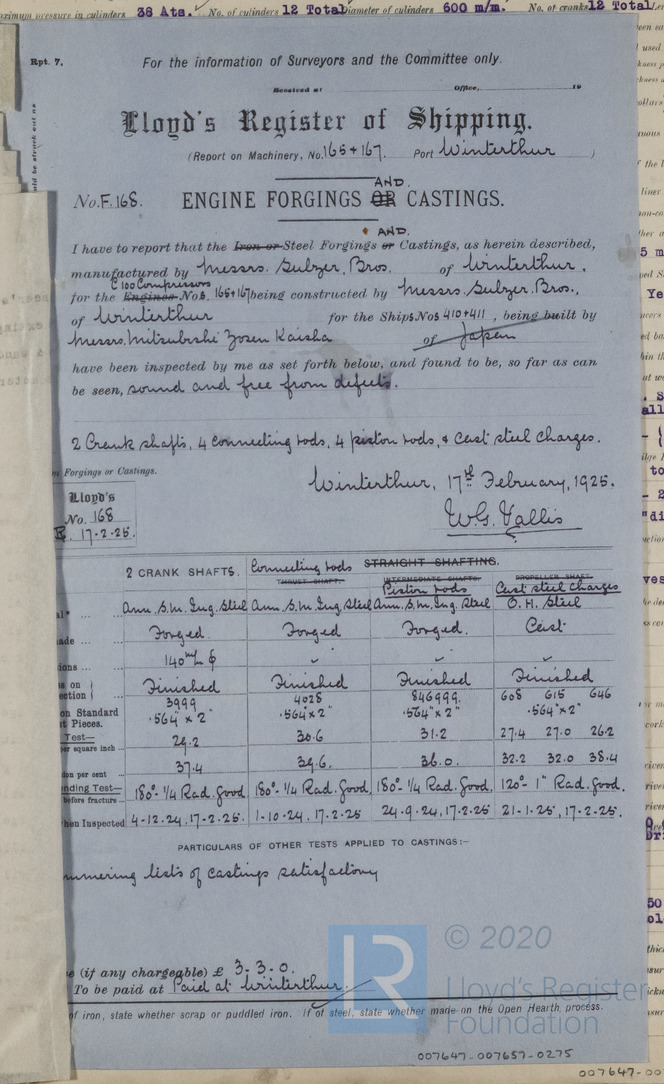 38 Ats. No. of cylinders 12 Total Diameter of cylinders 600 m/m. No. of cranks 12 Total
Rpt. 7.
For the information of Surveyors and the Committee only.
Received at Office, 19
Lloyd's Register of Shipping.
(Report on Machinery, No. 165+167. Port Winterthur )
No. F. 168. ENGINE FORGINGS OR AND CASTINGS.
I have to report that the Iron or Steel Forgings or AND. Castings, as herein described,
manufactured by Messrs. Sulzer, Bros. of Winterthur.
for the Engines Compressors Nos. 165+167 being constructed by Messrs. Sulzer. Bros.,
of Winterthur for the Ships Nos 410+411, being built by
Messrs. Mitsubishi Zosen Kaisha of Japan
have been inspected by me as set forth below, and found to be, so far as can
be seen, sound and free from defects.
2 Crank shafts, 4 connecting rods, 4 piston rods, & Cast steel Charges.
Forgings or Castings.
Winterthur, 17th February, 1925.
Lloyd's
No. 168
17-2-25.
W.G. Vallis
2 CRANK SHAFTS. Connecting rods STRAIGHT SHAFTING.
THRUST SHAFT. INTERMEDIATE SHAFTS. PROPELLER SHAFT.
Piston rods Cast steel charges
Ann. S.M. Ing. Steel Ann. S.M. Ing. Steel Ann. S.M. Ing. Steel O.H. Steel
Forged. Forged. Forged. Cast
140 m/m φ
Finished Finished Finished Finished
3999 4028 846999. 608 615 646
on Standard
Pieces. ·564" x 2" ·564" x 2" ·564" x 2" ·564" x 2"
Test— 29.2 30.6 31.2 27.4 27.0 26.2
per square inch
37.4 39.6. 36.0. 32.2 32.0 38.4
per cent
Test— 180°- 1/4 Rad. Good 180°- 1/4 Rad. Good 180°- 1/4 Rad. Good, 120°- 1" Rad. Good.
before fracture
Inspected 4-12-24, 17-2-25. 1-10-24, 17-2-25 24-9-24, 17-2-25 21-1-25, 17-2-25.
PARTICULARS OF OTHER TESTS APPLIED TO CASTINGS:—
tests of castings satisfactory
(if any chargeable) £ 3-3-0.
To be paid at Paid at Winterthur.
of iron, state whether scrap or puddled iron. If of steel, state whether made on the Open Hearth process.
© 2020
Lloyd's Register
Foundation
007647-007657-0275
007647-00